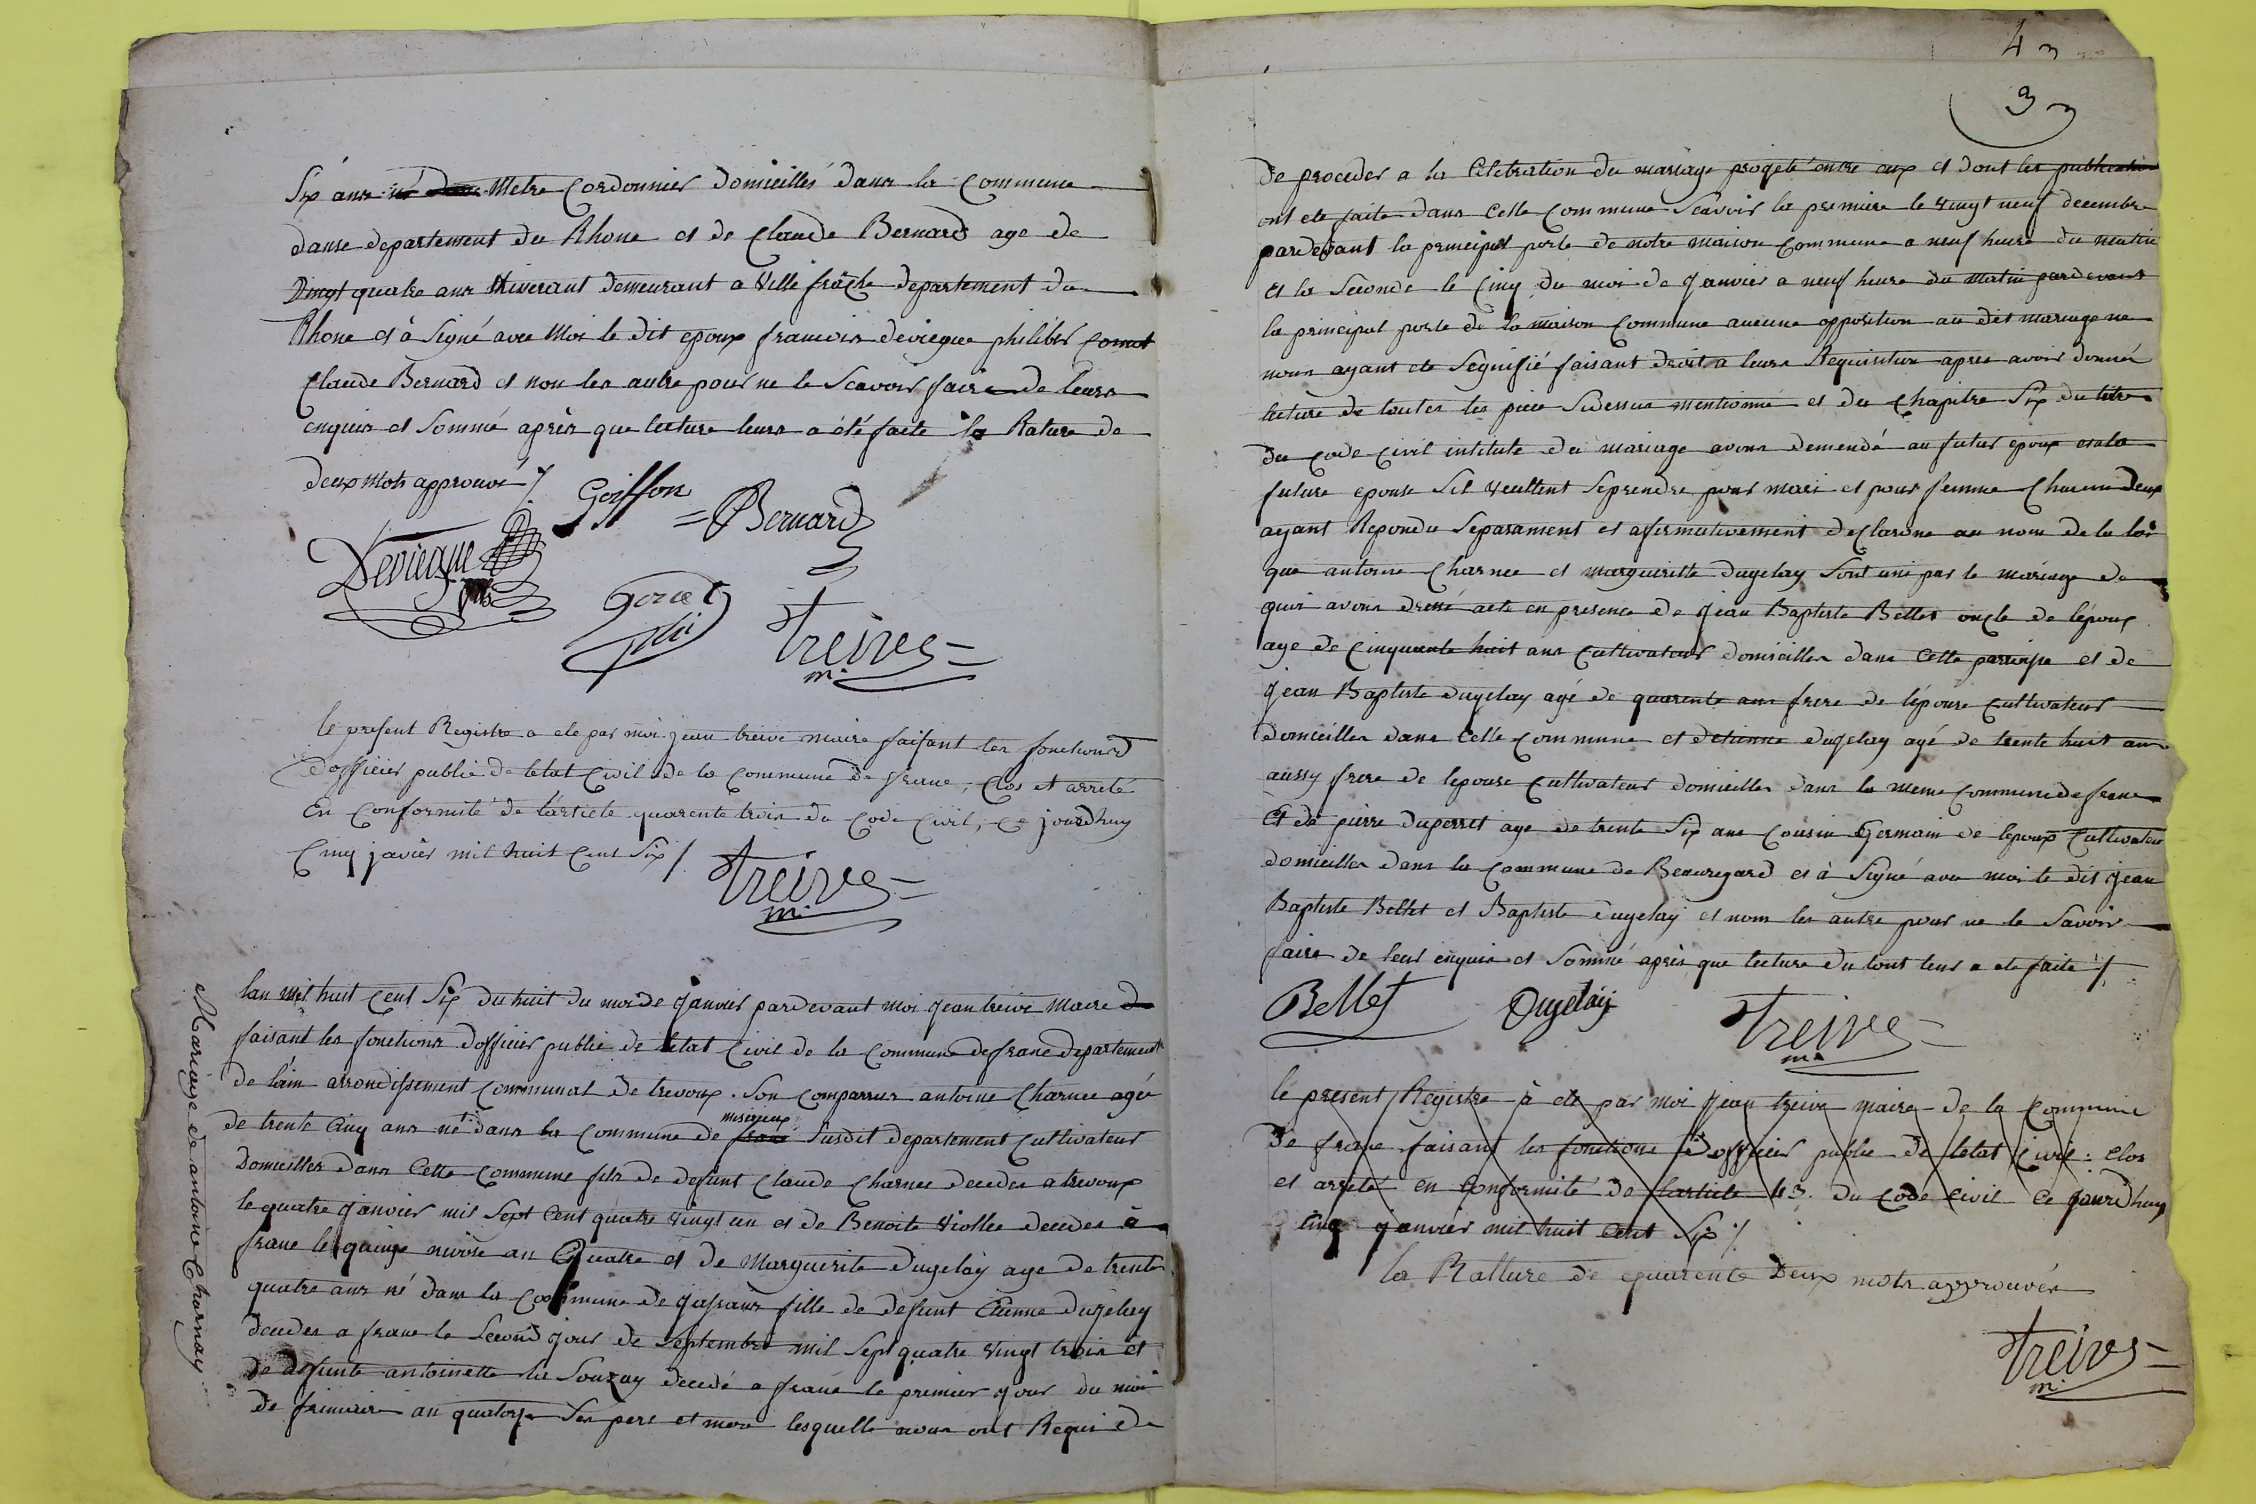 Six ans né dans Metre Cordonnier domicillés dans la Commune
danse departement du Rhone et de Claude Bernard age de
Vingt quatre ans demeurant a Ville departement du
Rhone et à Signé avec Moi le dit epoux francois devieque philiber
Claude Bernard et non les autre pour ne le Scavoir faire de leurs
enquis et Sommé après que lecture leurs a été faite la Rature de
deux Mots approuvé /.
Goiffon
= Bernard
Devieque fils
Treive
m.
le present Registre a ete par moi jean treive maire faisant les fonctions
dofficier public de letat Civil de la Commune de frane, Clos et arreté
En Conformité de larticle quarente trois du Code Civil, Ce jourdhuy
Cinq javier mil huit Cent Six /.
Treive
m.
Mariage de antoine Charnay
lan Mil huit Cent Six du huit du moi de janvier pardevant moi jean treive Maire de
faisant les fonctions dofficier public de letat Civil de la Commune de frane departement
de lain arrondissement Communal de trevoux. Son Comparrues antoine Charnee agée
de trente Cinq ans né dans la Commune de frane misérieux Susdit departement Cultivateur
Domicillés dans Cette Commune fils de defunt Claude Charnee decedes a trevoux
le quatre janvier mil Sept Cent quatre Vingt un et de Benoite Viollee decedes à
frane le quinze nivose an Quatre et de Marguerite Dugelay age de trente
quatre ans né dans la Commune de jassans fille de défunt Etienne Dugelay
decedes a frane le Second jour de Septembre mil Sept quatre Vingt trois et
de defunte antoinette la Souzay decedé a frane le premier jour du moi
de frimaire an quatorze Ses pere et mere lesquelle nous ont Requi de
4
3
de proceder a la Celebration du mariage projeté entre eux et dont les publication
ont ete faite dans Cette Commune Scavoir la premiere le Vingt neuf decembre
pardevant la principal porte de notre maison Commune a neuf heure du matin
et la Seconde le Cinq du moi de janvier a neuf heure du matin pardevant
la principal porte de la maison Commune aucune opposition au dit mariage ne
nous ayant ete Segnifié faisant droit a leurs Requisition apres avoir donnée
lecture de toutes les piece Sidessus mentionné et du Chapitre Six du titre
du Code Civil intitulé du mariage avons demendé au futur epoux et a la
future epouse Sil veullent Seprendre pour mari et pour femme Chacun deux
ayant Repondu Separament et afirmativement declarons au nom de la loi
que antoine Charnee et marguerite dugelay Sont uni par le mariage de
quoi avons dressé acte en presence de jean Baptiste Bellet oncle de lépoux
age de Cinquante huit ans Cultivateur domicilles dans Cette paroisse et de
jean Baptiste dugelay agé de quarente ans frere de lépouse Cultivateur
domicilles dans Cette Commune et detienne dugelay agé de trente huit ans
aussy frere de lepouse Cultivateur domicilles dans la meme Commune de frane
Et de pierre duperret age de trente Six ans Cousin Germain de lepoux Cultivateur
domicilles dans la Commune de Beauregard et à Signé avec moi le dit jean
Baptiste Bellet et Baptiste Dugelay et nom les autre pour ne le Savoir
faire de leur enquis et Sommé après que lecture du tout leur a ete faite /.
Bellet
Dugelay
Treive
m.
le present Registre à ete par moi jean treive maire de la Commune
de frane faisant les fonctions dofficier public de letat Civil : Clos
et arreté en Conformité de larticle 43. du Code Civil Ce jourdhuy
Cinq janvier mil huit Cent Six /.
la Ratture de quarente Deux mots approuvés
Treive
m.